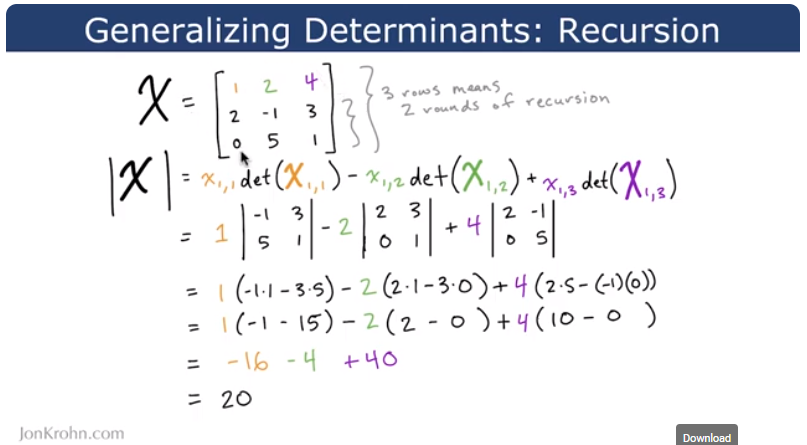 Generalizing Determinants: Recursion
X = [ 1 2 4
2 -1 3
0 5 1 ]
3 rows means
2 rounds of recursion
|X| = x₁,₁ det(X₁,₁) - x₁,₂ det(X₁,₂) + x₁,₃ det(X₁,₃)
= 1 | -1 3 | - 2 | 2 3 | + 4 | 2 -1 |
| 5 1 | | 0 1 | | 0 5 |
= 1 (-1·1 - 3·5) - 2 (2·1 - 3·0) + 4 (2·5 - (-1)(0))
= 1 (-1 - 15) - 2 (2 - 0) + 4 (10 - 0 )
= -16 - 4 + 40
= 20
JonKrohn.com
Download